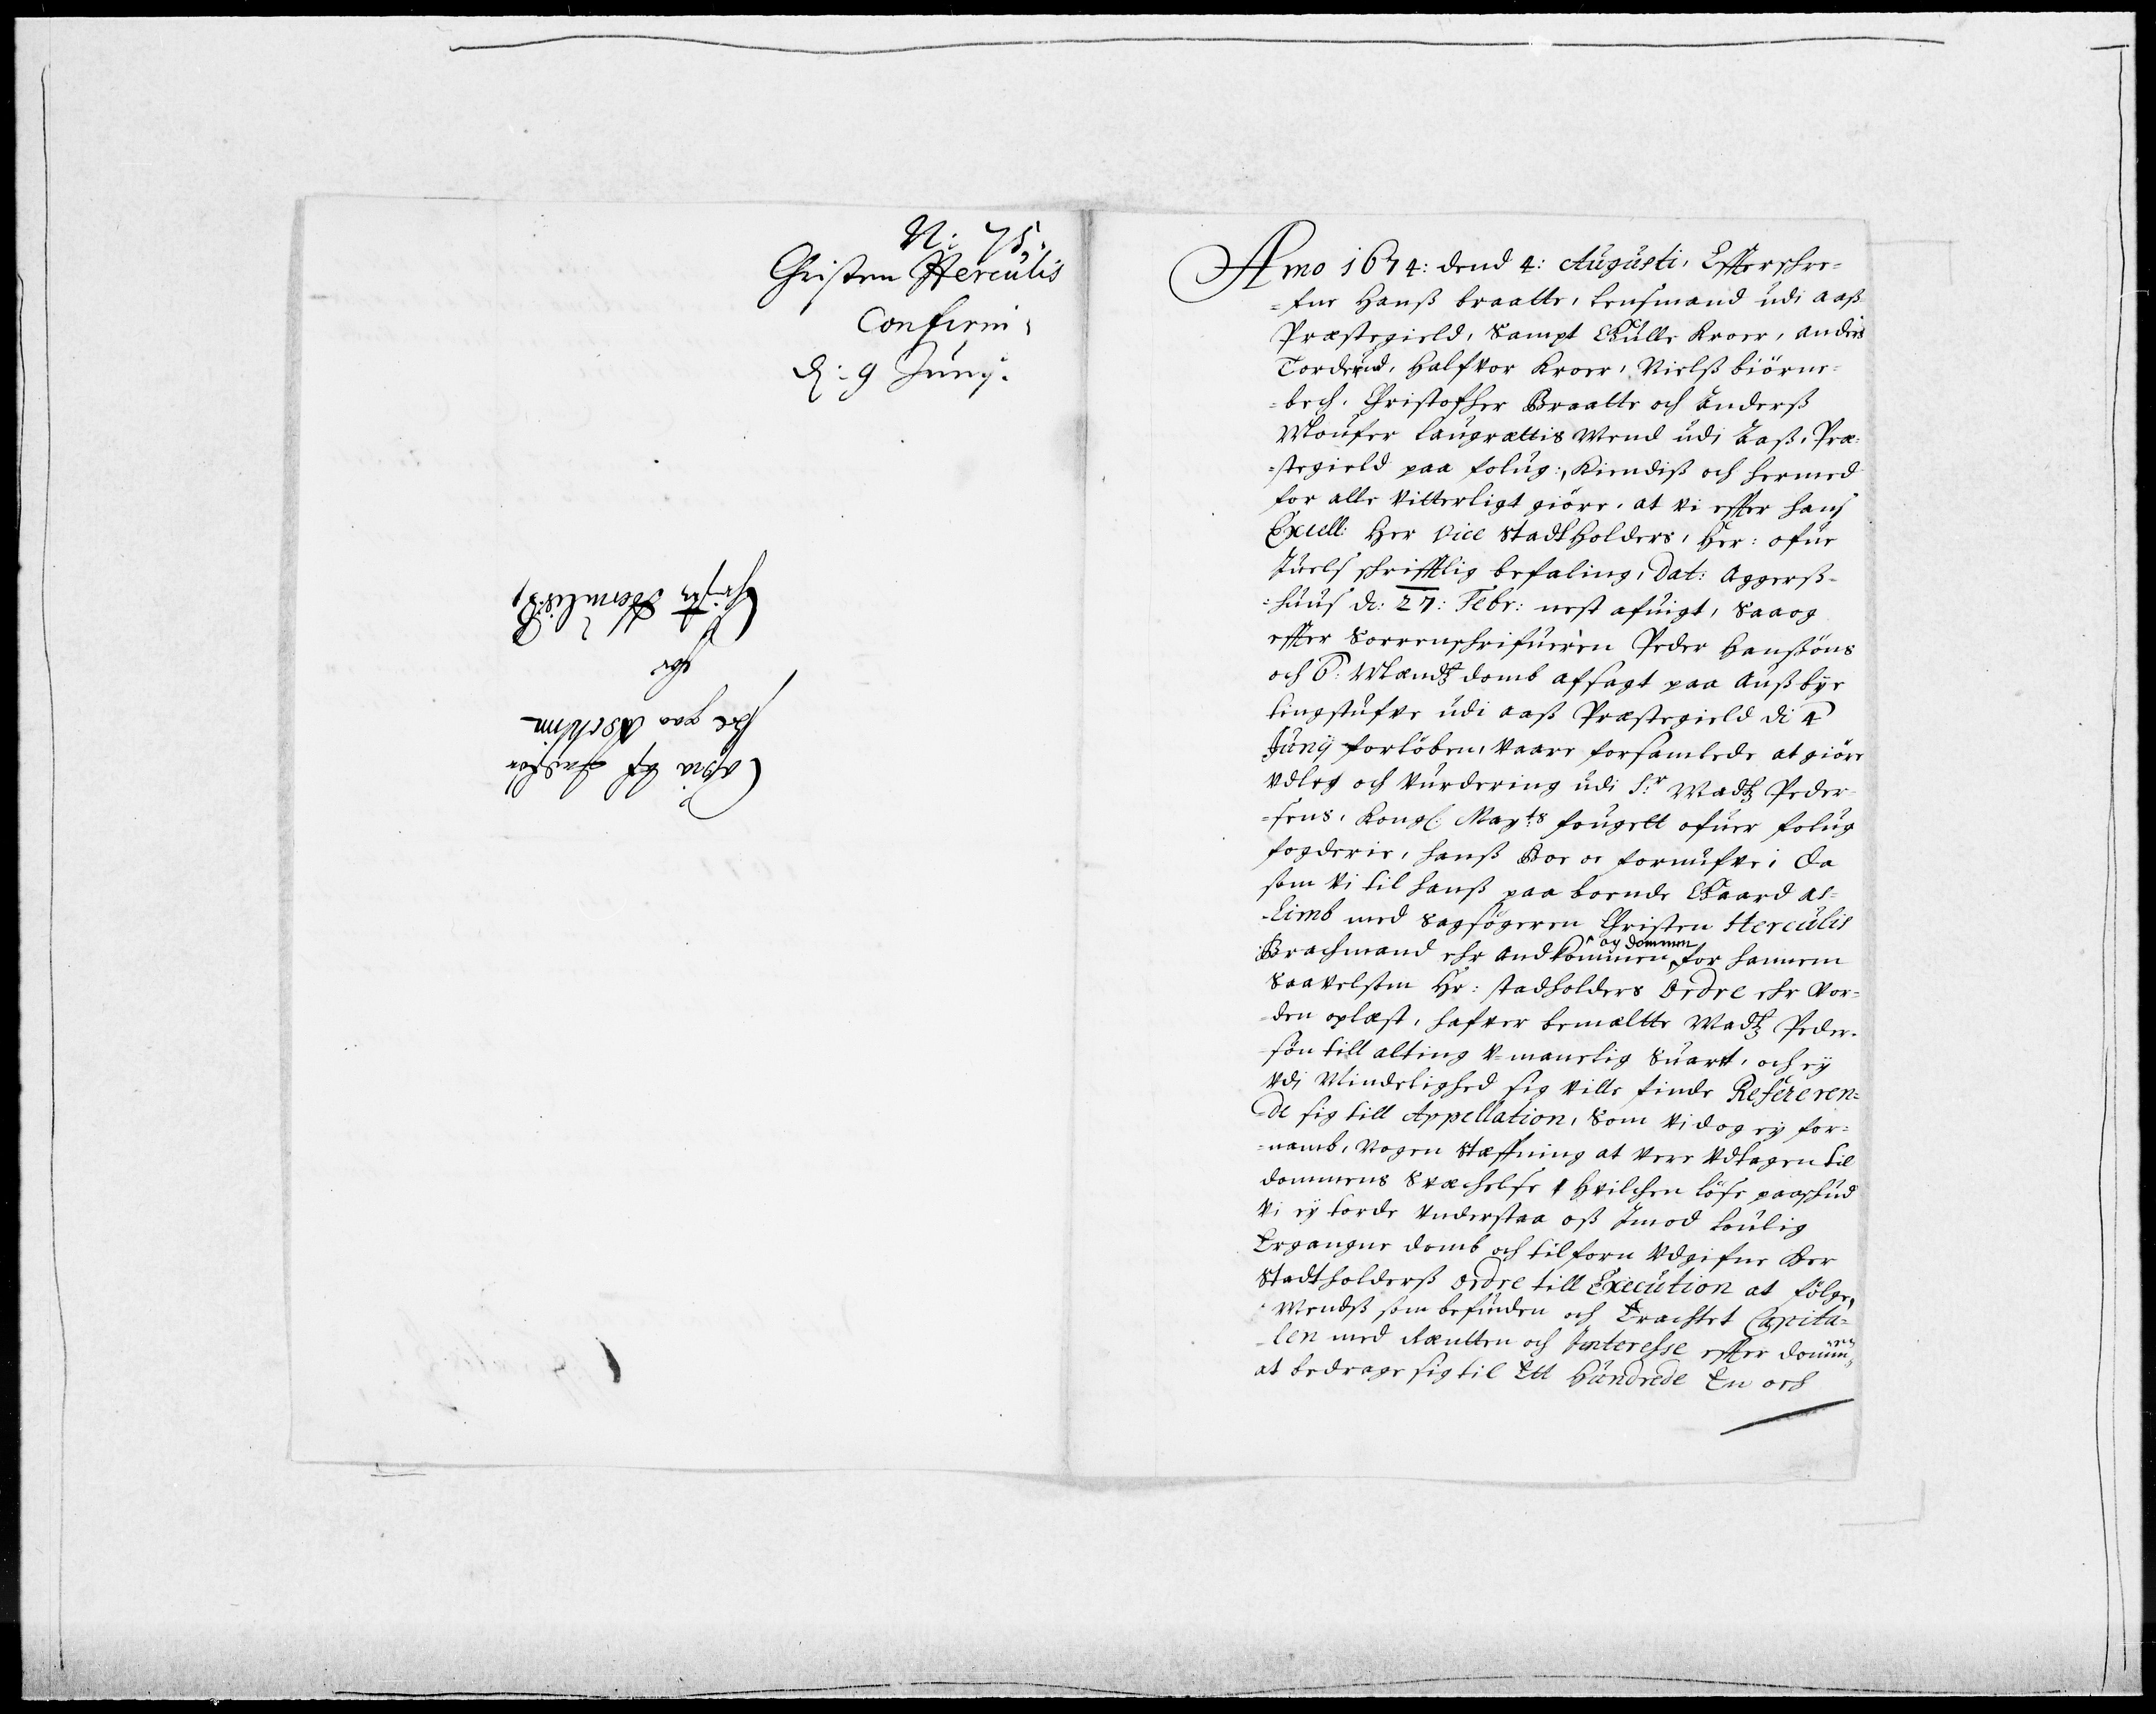 N: 75.
Christen Herculis
Confirm:
d: 9 Junij.
Copia af
paa
for
Christen Herculis B
Anno 1674: dend 4: Augusti, Effterschre-
=fne Hanß braatte, lensmand udi aaß
Præstegield, Sampt Gulle Kroer, anders
Torderud, Halfvor Kroer, Nielß biörne-
=bech, Christopher Braatte och Anderß
Moufer laugrættis Mend udi Aaß, Præ-
=stegield paa folug:, Kiendiß och hermed
for alle vitterligt giöre, at vi effter hans
Excell: Her Vice Stadtholders, Her: ofue
Juels schrifftlig befaling, Dat: Aggerß-
=huus d: 27: Febr: nest afuigt, Saa og
effter Sorrenschrifueren Peder Hansöns
och 6: Mændz domb afsagt paa Außbye
tingstufve udi aaß Præstegield di 4
Junij forlöben, vaare forsamlede at giöre
vdleg och vurdering udi Sr Madtz Peder-
=sens, Kongl: Mayts fougett ofuer folug
fogderie, hanß Boe oc formufve, Da
som vi til hanß paa boende Gaard as-
-limb med Sagsögeren Christen Herculis
Brachmand ehr andkommen, og dommen for hannem
Saavelsom Hr: stadholders Ordre ehr vor-
den oplæst, hafver bemælte Madtz Peder-
sön till alting u-manerlig Suaret, och ey
vdi Mindelighed sig ville finde Refereren-
=de sig till Appellation, Som vi dog ey for-
=namb, nogen Stæffning at vere vdtagen til
dommens Suæchelse, Hvilchen löse paaschud
vi ey torde understaa oß Imod loulig
Ergangne domb och tilforn vdgifne Her
Stadtholderß Ordre till Execution at fölge,
Mendß som befinden och Erachtet Capita-
-len med Rentten och Interesse effter dommen
at bedrage sig til Ett Hundrede En och